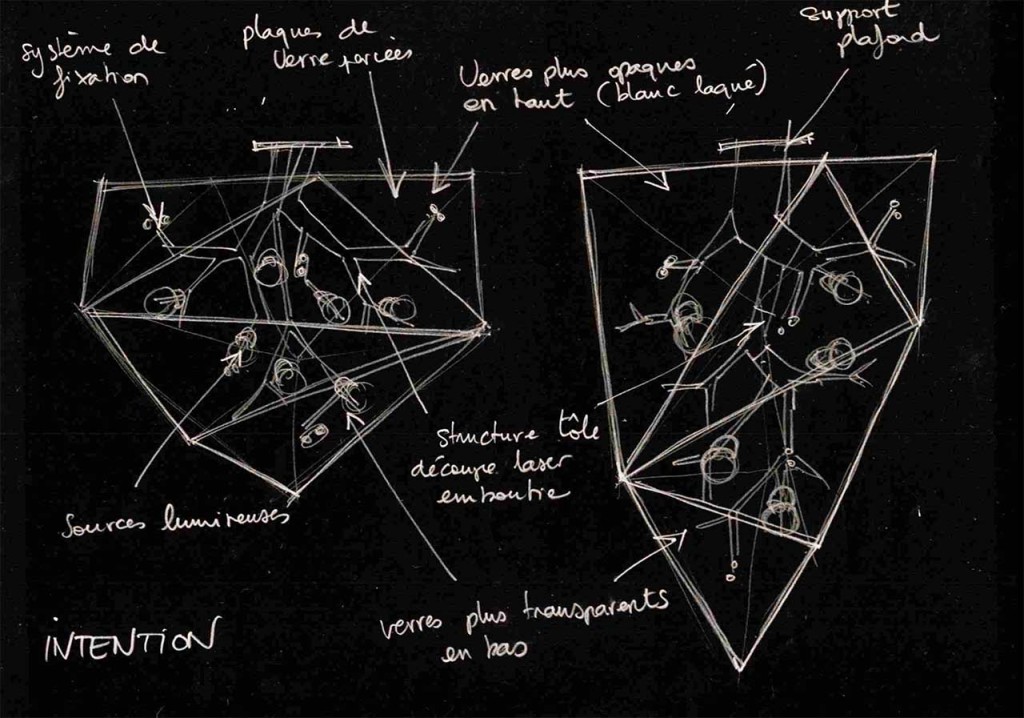 système de
fixation
plaques de
Verre percées
Verres plus opaques
en haut (blanc laqué)
support
plafond
structure tôle
découpe laser
emboutie
Sources lumineuses
verres plus transparents
en bas
INTENTION